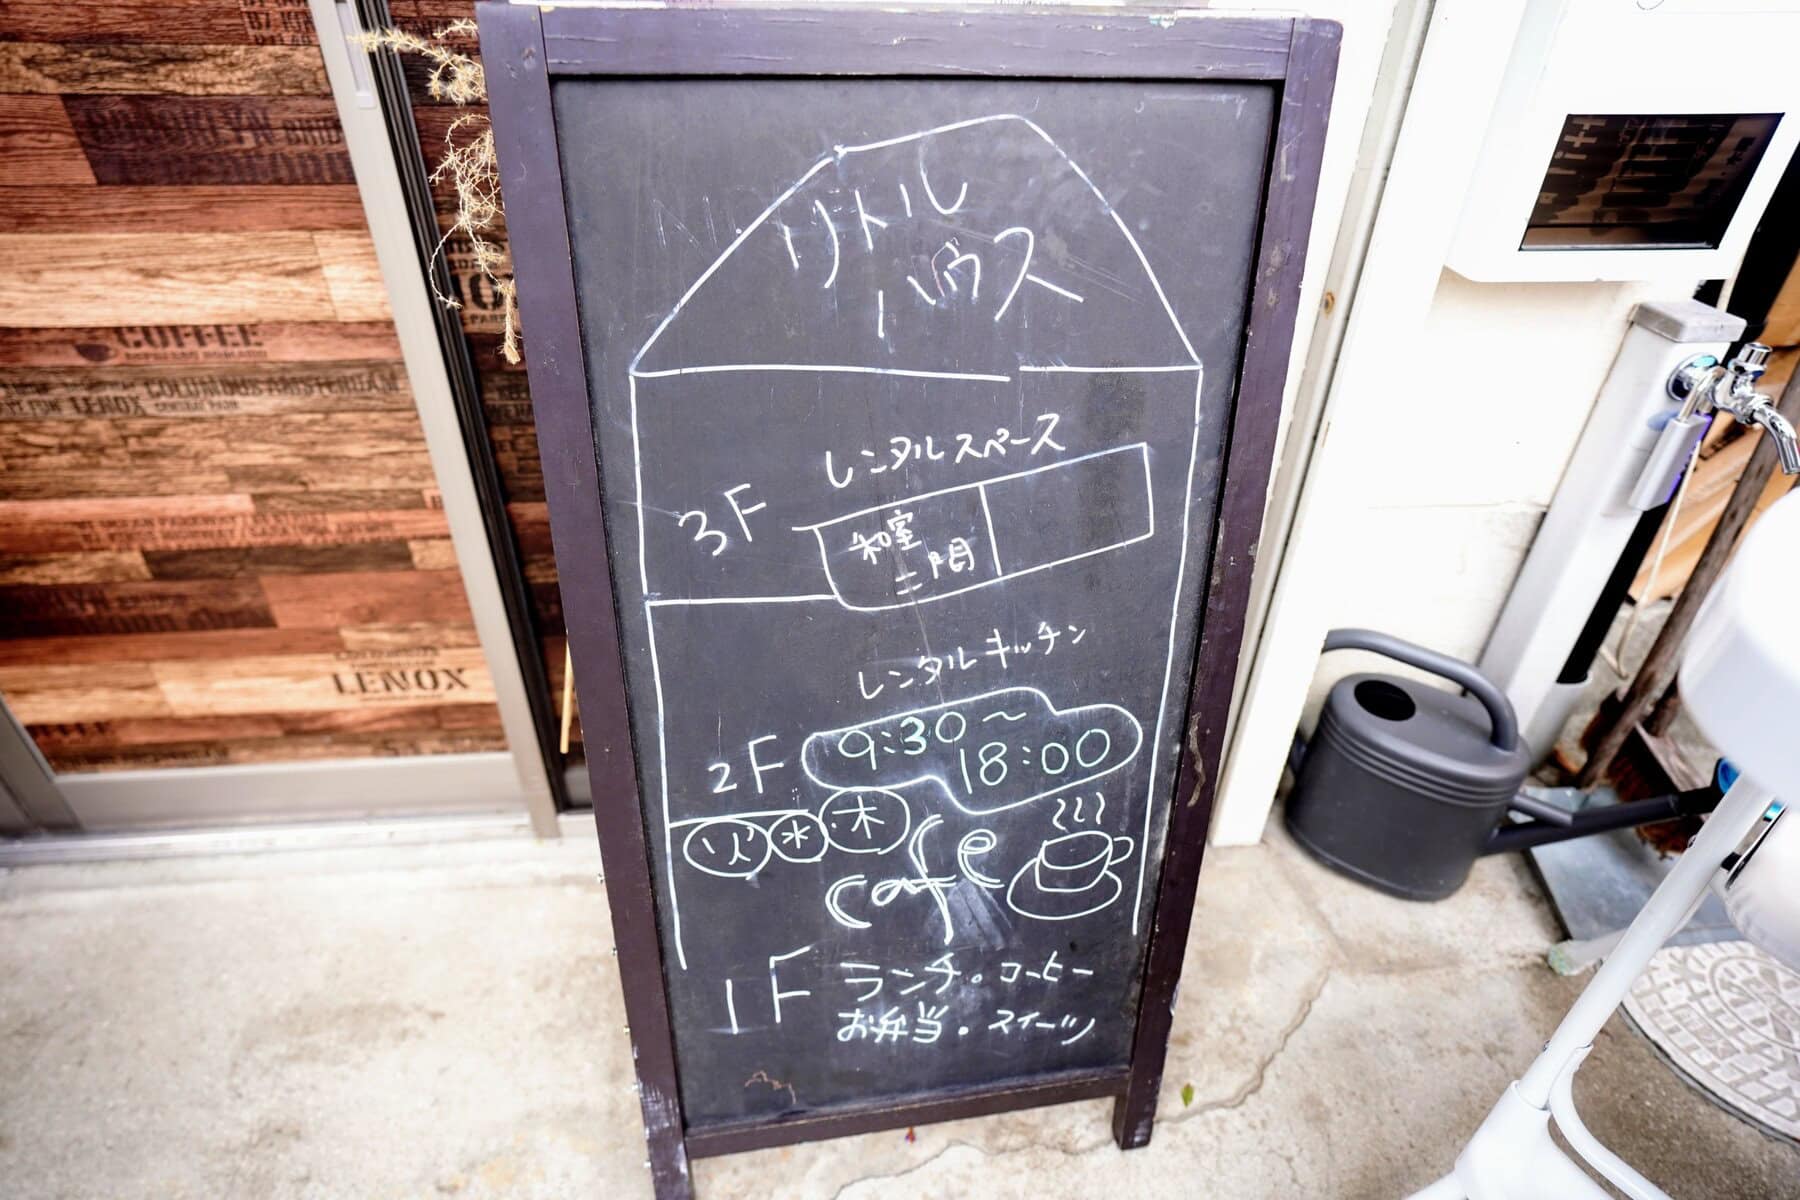 リトル
ハウス
レンタルスペース
3F
和室
二間
レンタルキッチン
2F
9:30～
18:00
火 水 木
cafe
1F
ランチ・コーヒー
お弁当・スイーツ
COFFEE
COLUMBUS AMSTERDAM
LENOX
CENTRAL PARK
LENOX